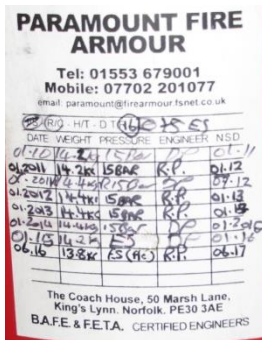 PARAMOUNT FIRE
ARMOUR
Tel: 01553 679001
Mobile: 07702 201077
email: paramount@firearmour.fsnet.co.uk
H/T - D T
DATE WEIGHT PRESSURE ENGINEER N S D
01.10 14.2k 15Bar 01-11
01.2011 14.2kg 15BAR R.P. 01.12
01.2012 14.4kg 15BAR R.P. 01.13
01.2013 14.4kg 15BAR R.P.
01.2014 14.4kg 15Bar
01.15 14.2k ES 01-16
06.16 13.8kg R.P. 06.17
The Coach House, 50 Marsh Lane,
King's Lynn. Norfolk. PE30 3AE
B.A.F.E. & F.E.T.A. CERTIFIED ENGINEERS